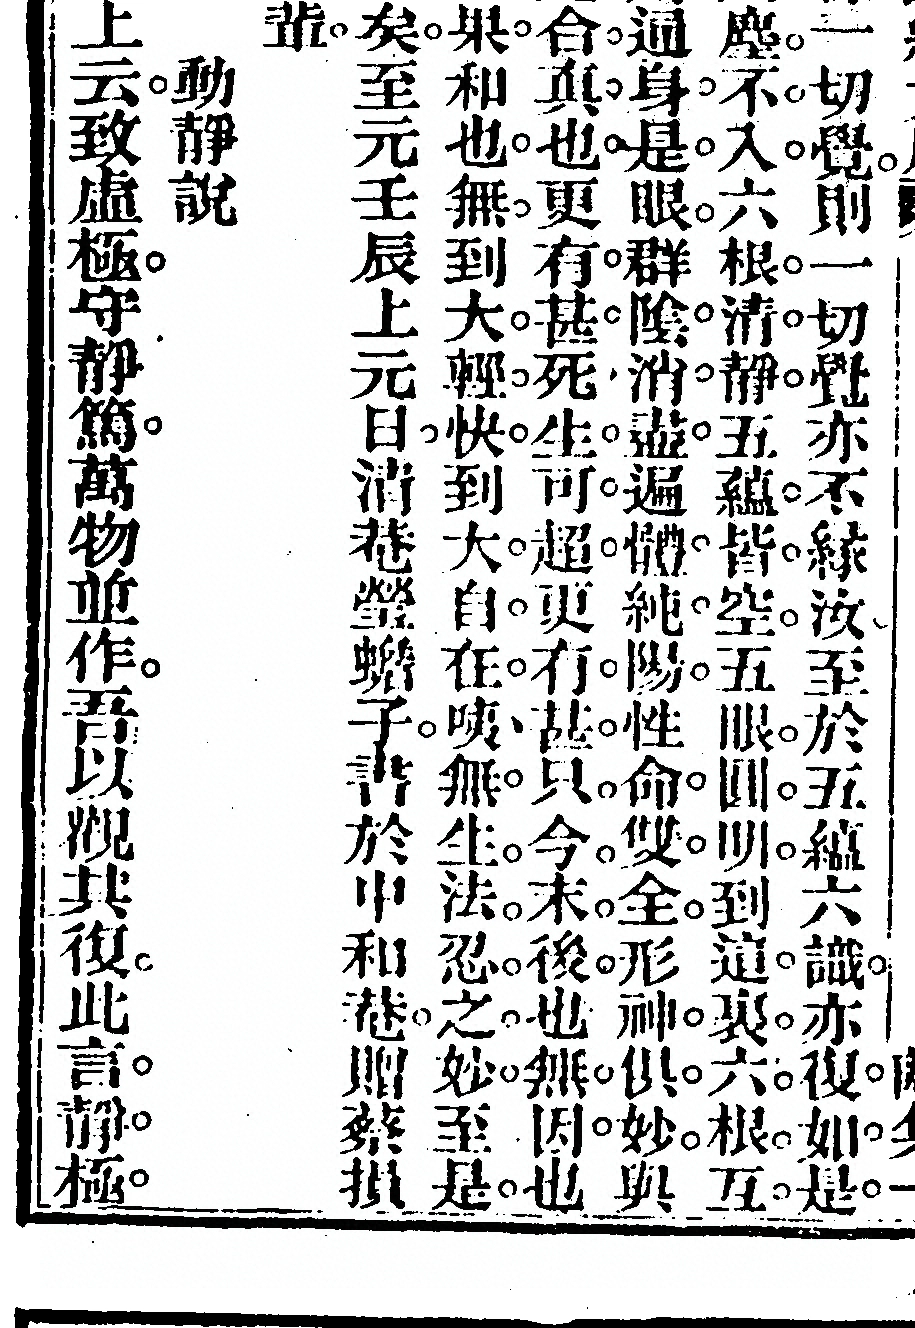 一切覺則一切覺亦不緣汝至於五蘊六識亦復如是
塵不入六根清靜五蘊皆空五眼圓明到這裏六根互
通身是眼群陰消盡遍體純陽性命雙全形神俱妙與
合眞也更有甚死生可超更有甚只今末後也無因也
果和也無到大輕快到大自在咦無生法忍之妙至是
矣至元壬辰上元日清菴瑩蟾子書於中和菴贈蔡損
菴
動靜說
上云致虛極守靜篤萬物並作吾以觀其復此言靜極